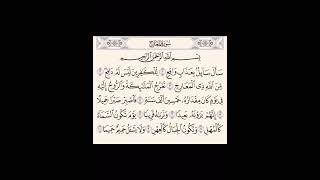 سورة المعارج
بسم الله الرحمن الرحيم
سأل سائل بعذاب واقع ١ للكفرين ليس له دافع ٢
من الله ذي المعارج ٣ تعرج الملئكة والروح إليه
في يوم كان مقداره خمسين ألف سنة ٤ فاصبر صبرا جميلا
٥ إنهم يرونه بعيدا ٦ ونرىه قريبا ٧ يوم تكون السماء
كالمهل ٨ وتكون الجبال كالعهن ٩ ولا يسئل حميم حميما ١٠